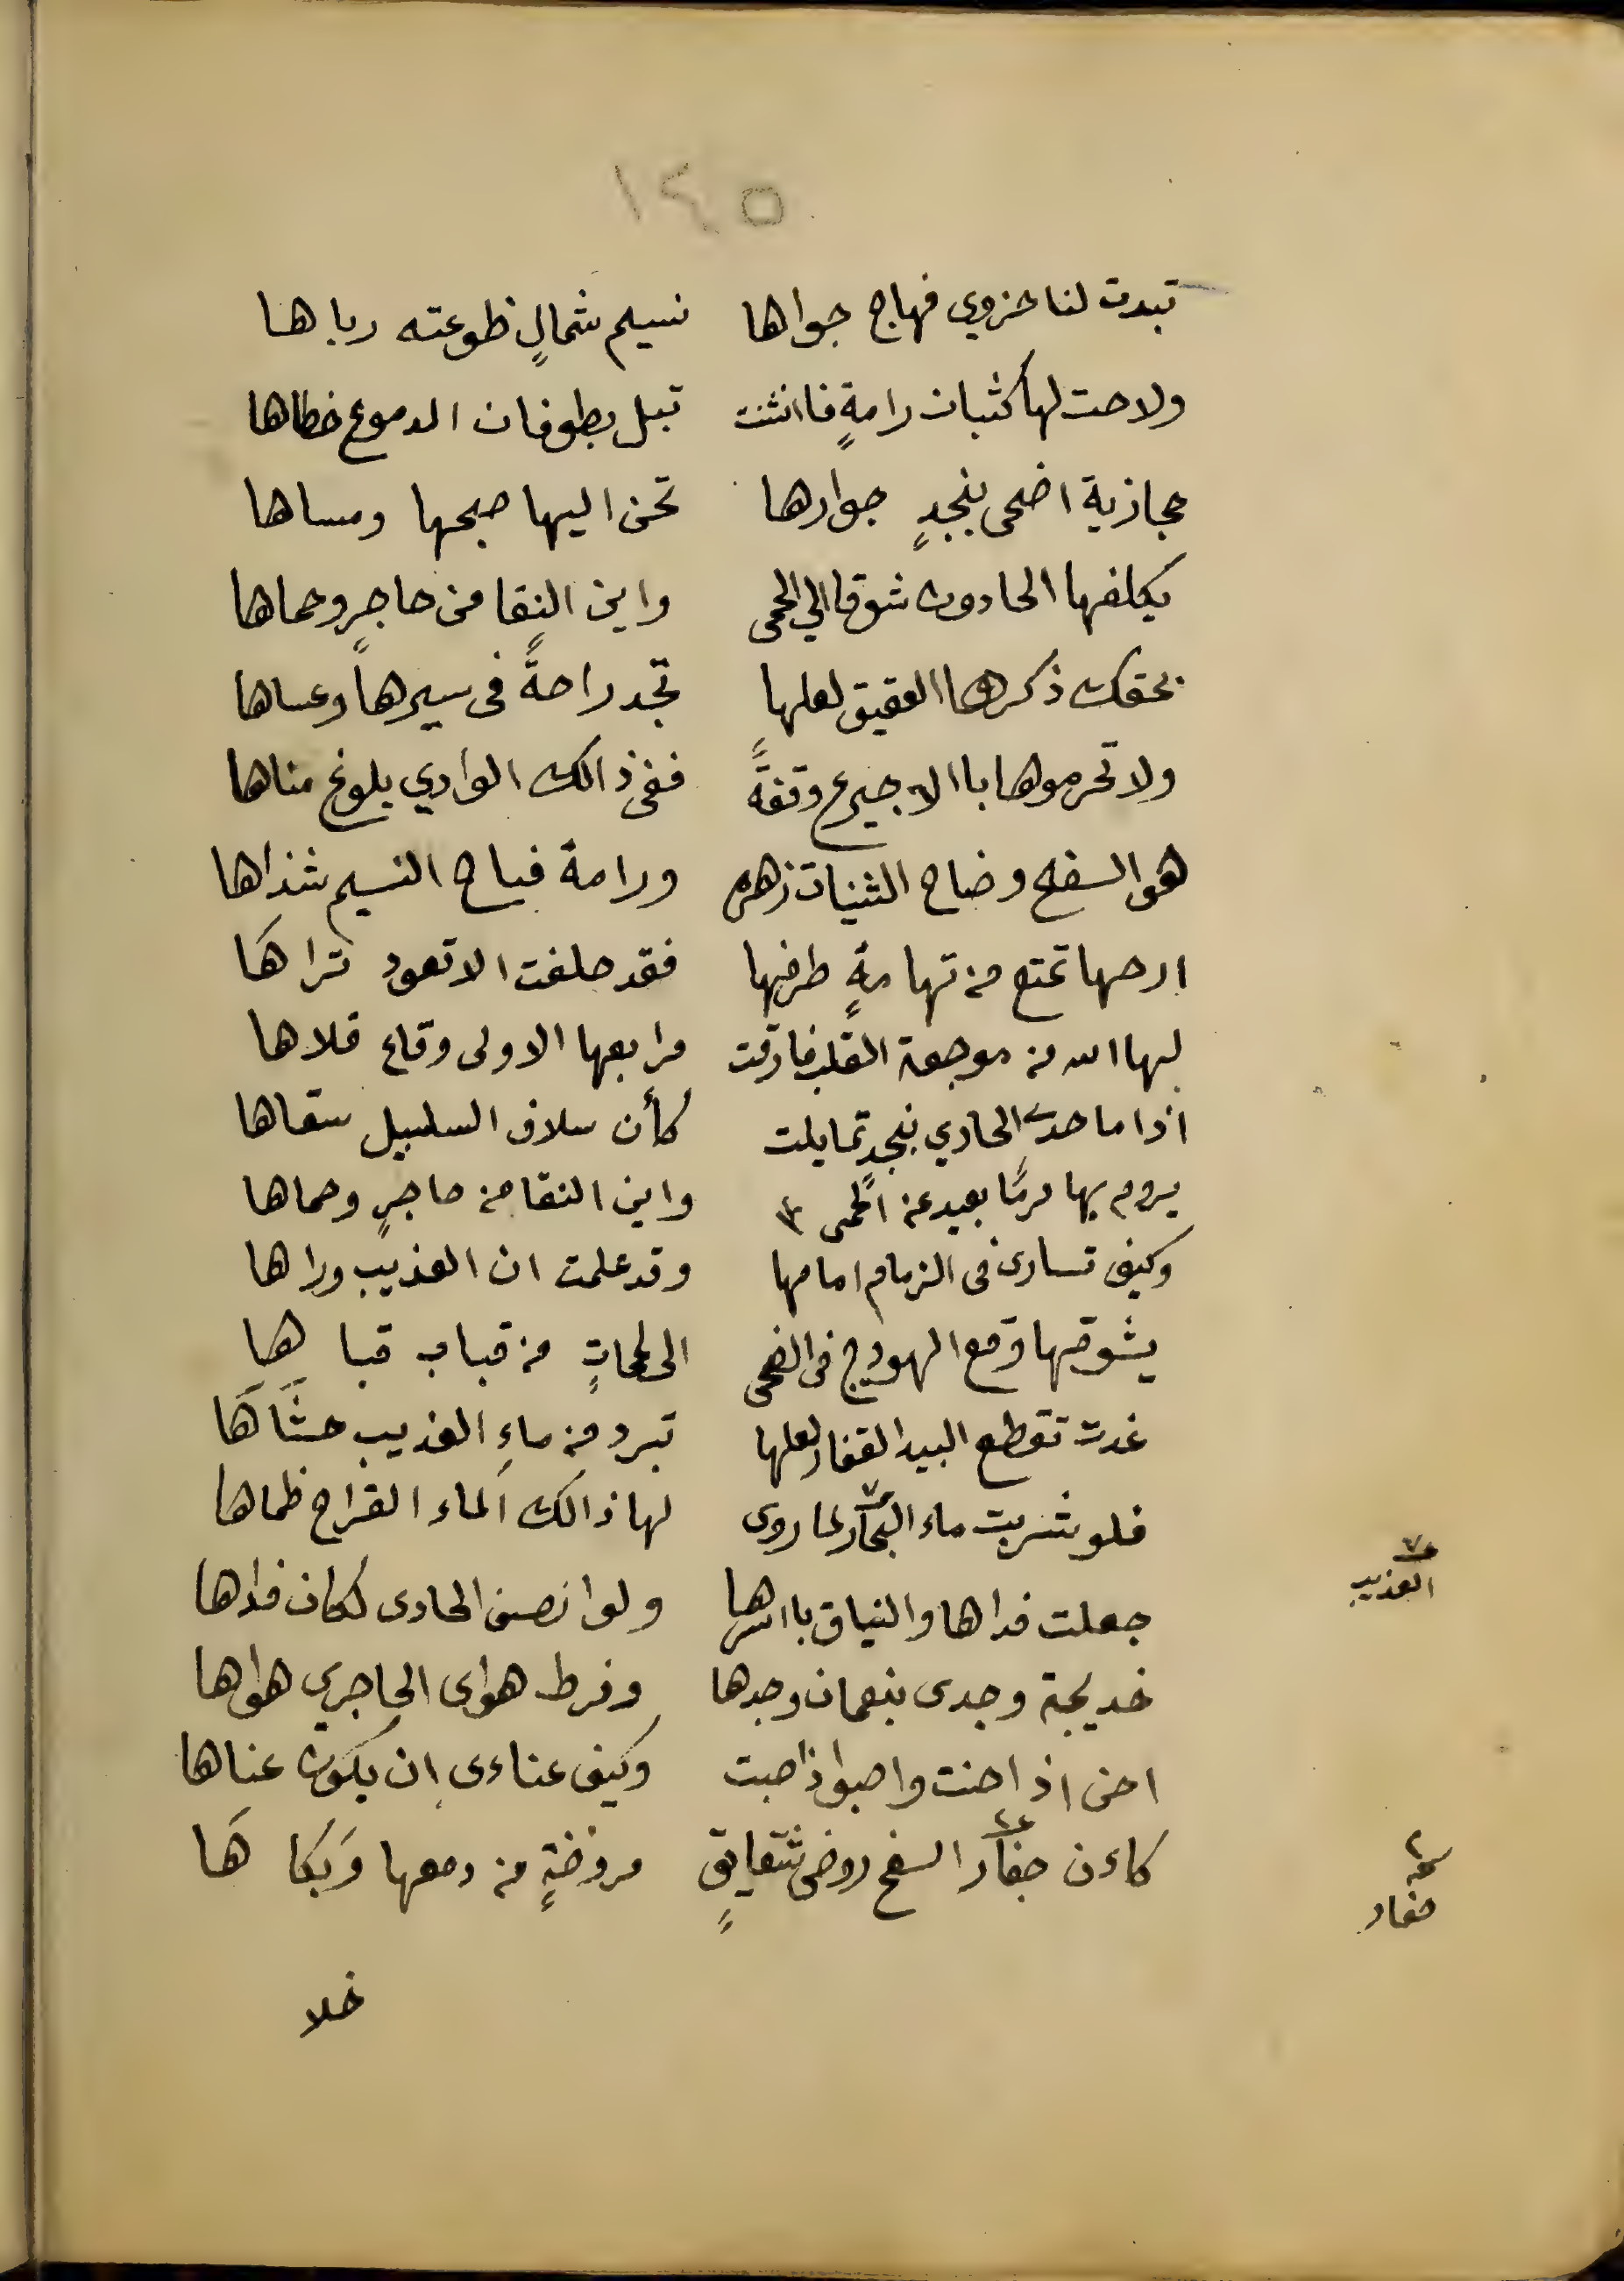 ١٤٥
تبدت لنا حزوي فهاج جواها نسيم شمالٍ ظوعته رباها
ولاحت لها كثبان رامةٍ فاانثنت تبل بطوفان الدموع خطاها
حجازية اضحى بنجدٍ جوارها تحن اليها صبحها ومساها
يكلفها الحادون شوقا الي الحمى واين النقا من حاجرٍ وحماها
بحقك ذكرها العقيق لعلها تجد راحةً فى سيرها وعساها
ولا تحرموها باالاجيرع وقفةً ففي ذالك الوادي بلوغ مناها
هو السفح وضاح الثنيات زهره ورامة فياح النسيم شذاها
ارحها تمتع من تهامةٍ طرفها فقد حلفت الا تعود تراها
لها الله من موجعة القلب فارقت مرابعها الاولى وقاع فلاها
اذا ما حدى الحادي بنجدٍ تمايلت كأن سلاف السلسبيل سقاها
يروم بها مرمًا بعيد عن الحمى واين النقا من حاجرٍ وحماها
وكيف تسارى فى الزمام امامها وقد علمت ان العذيب وراها
يشوقها وقع الهودج فى الضحى الى لمحاتٍ من قباب قباها
غدت تقطع البيد القفار لعلها تبرد من ماءِ العذيب حشاها
فلو شربت ماء البحار لما روى لها ذالك الماء القراح ظماها
العذيب
جعلت فداها والنياق بااسرها ولو انصف الحادى لكان فداها
خديجة وجدى بنعمان وجدها وفرط هواى الحاجري هواها
احن اذ احنت واصبوا ذا صبت وكيف عناءى ان يكون عناها
كاءن جفار السفح روض شقايقٍ مروضةٍ من دمعها وبكاها
حفار
خلا